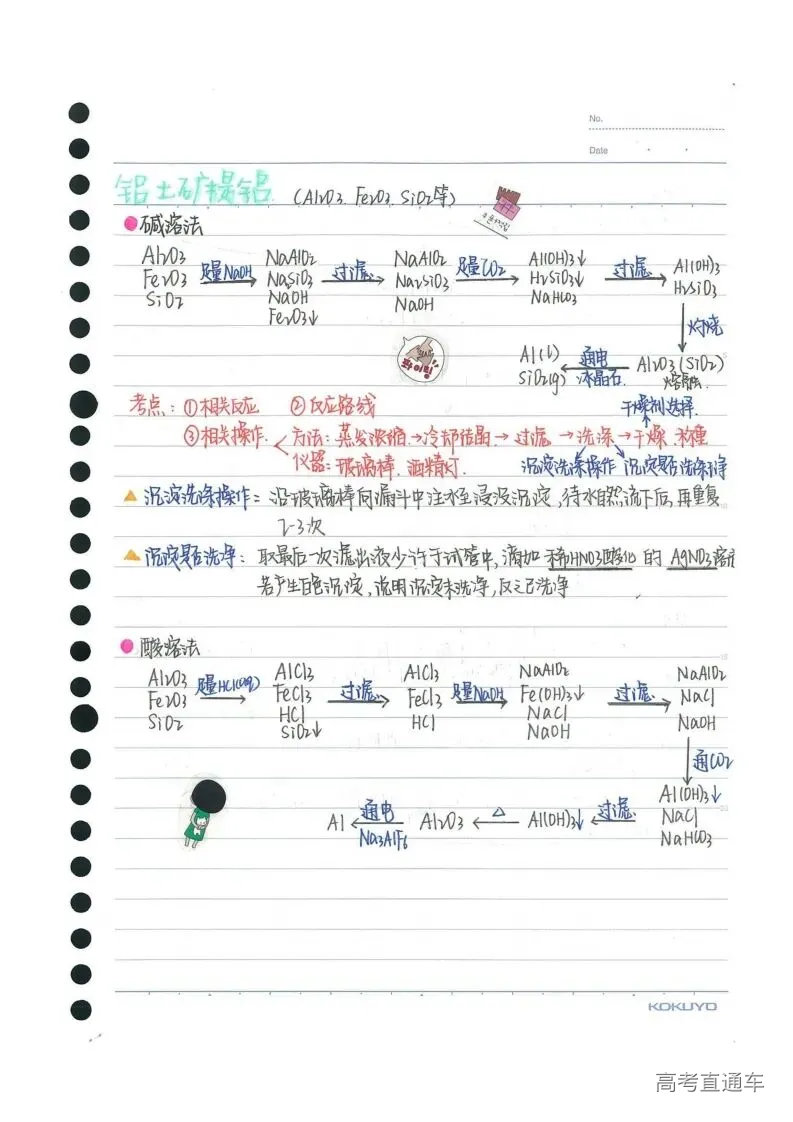 No.
Date
铝土矿提铝 (Al₂O₃、Fe₂O₃、SiO₂等)
碱溶法
Al₂O₃ Fe₂O₃ SiO₂ 足量NaOH→ NaAlO₂ NaSiO₃ NaOH Fe₂O₃↓ 过滤→ NaAlO₂ Na₂SiO₃ NaOH 足量CO₂→ Al(OH)₃↓ H₂SiO₃↓ NaHCO₃ 过滤→ Al(OH)₃ H₂SiO₃
↓灼烧
Al(l) SiO₂(g) ←通电 冰晶石 Al₂O₃(SiO₂)
考点:①相关反应 ②反应路线 干燥剂选择
③相关操作 方法:蒸发浓缩→冷却结晶→过滤→洗涤→干燥、称重
仪器:玻璃棒、酒精灯 沉淀洗涤操作 沉淀是否洗涤净
沉淀洗涤操作:沿玻璃棒向漏斗中注水至浸没沉淀,待水自然流下后,再重复
2-3次
沉淀是否洗净:取最后一次滤出液少许于试管中,滴加稀HNO₃酸化的AgNO₃溶液
若产生白色沉淀,说明沉淀未洗净,反之已洗净
酸溶法
Al₂O₃ Fe₂O₃ SiO₂ 足量HCl(aq)→ AlCl₃ FeCl₃ HCl SiO₂↓ 过滤→ AlCl₃ FeCl₃ HCl 足量NaOH→ NaAlO₂ Fe(OH)₃↓ NaCl NaOH 过滤→ NaAlO₂ NaCl NaOH
↓通CO₂
Al ←通电 Na₃AlF₆ Al₂O₃ ←△ Al(OH)₃↓ ←过滤 Al(OH)₃↓ NaCl NaHCO₃
KOKUYO
高考直通车